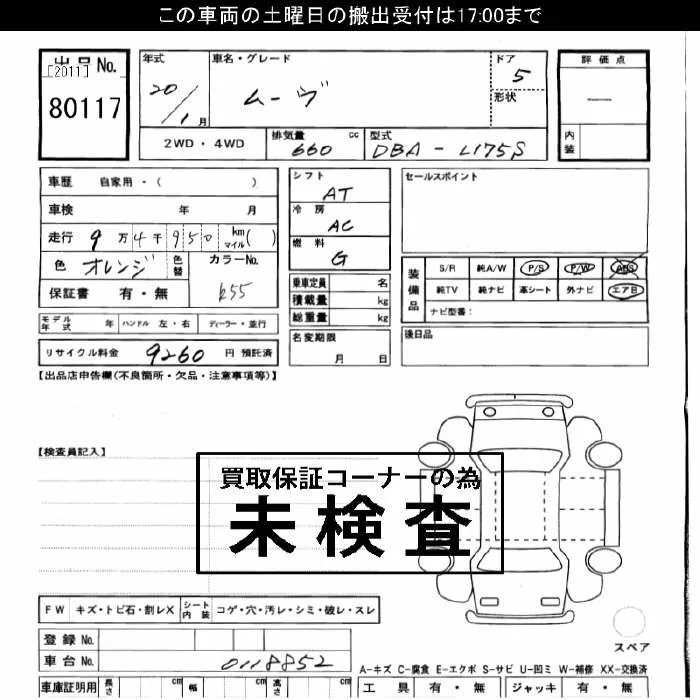 この車両の土曜日の搬出受付は17:00まで
出品No.
[2011]
80117
年式
20/1月
車名・グレード
ムーヴ
ドア
5
形状
評価点
―
内装
2WD・4WD
排気量 cc
660
型式
DBA-L175S
車歴 自家用・( )
車検 年 月
走行 9万4千950 km マイル( )
色 オレンジ 色替 カラーNo.
保証書 有・無 R55
シフト
AT
冷房
AC
燃料
G
乗車定員 名
積載量 kg
総重量 kg
名変期限
月 日
セールスポイント
装備品
S/R 純A/W P/S P/W ABS
純TV 純ナビ 革シート 外ナビ エアB
ナビ型番:
後日品
モデル年式 年 ハンドル 左・右 ディーラー・並行
リサイクル料金 9260 円 預託済
【出品店申告欄(不良箇所・欠品・注意事項等)】
【検査員記入】
買取保証コーナーの為
未検査
FW キズ・トビ石・割レX シート内装 コゲ・穴・汚レ・シミ・破レ・スレ
登録No.
車台No. 0118852
スペア
A-キズ C-腐食 E-エクボ S-サビ U-凹ミ W-補修 XX-交換済
車庫証明用 長さ cm 幅 cm 高さ cm
工具 有・無 ジャッキ 有・無